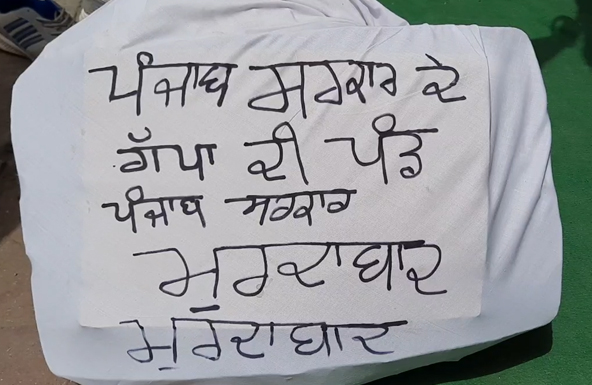 ਪੰਜਾਬ ਸਰਕਾਰ ਦੇ
ਗੱਪਾ ਦੀ ਪੰਡ
ਪੰਜਾਬ ਸਰਕਾਰ
ਮੁਰਦਾਬਾਦ
ਮੁਰਦਾਬਾਦ